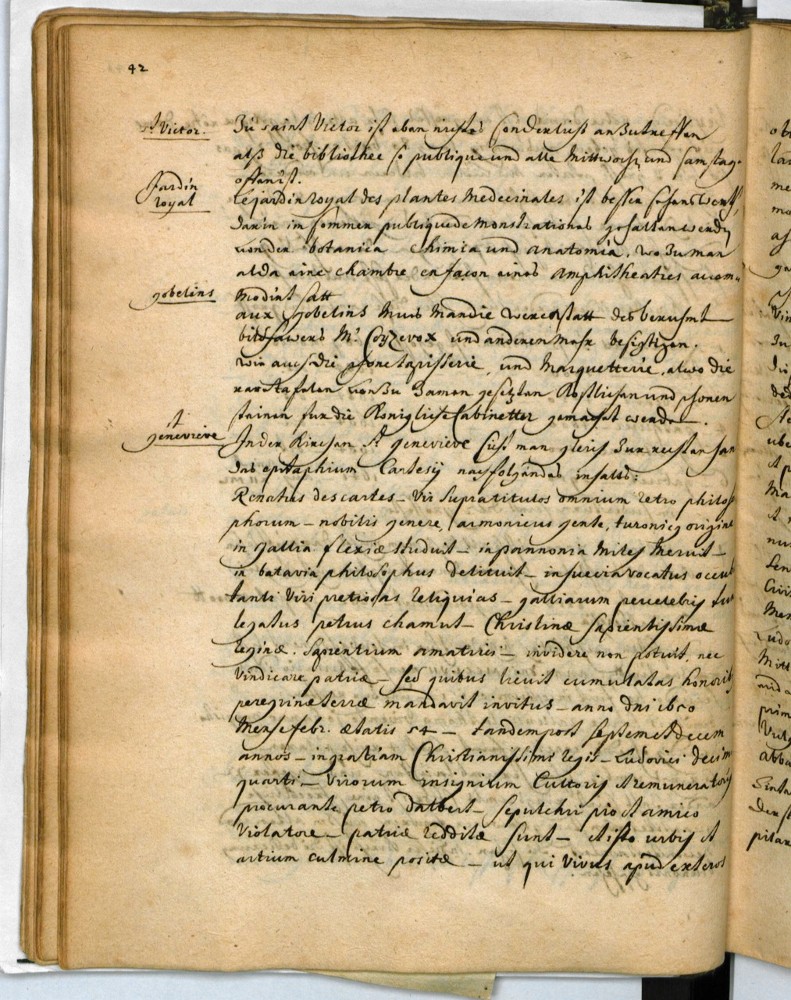 42
St Victor.
Zu saint Victor ist eben nichts sonderlichs anzutreffen
alß die bibliothec so publique und alle Mittwochs und samstag
offen ist.
Jardin
royal
Le jardin royal des plantes medecinales ist besser sehens werth,
darin im sommer publique demonstrationes gehalten werden
von der botanica chimia und anatomia, wozu man
alda eine chambre en façon eines amphitheatres accom-
modirt hatt
gobelins
aux gobelins mus man die werckstatt des berühmt
bildhawers Mr. Coyzevox und anderen mehr besichtigen.
wie auch die schöne tapisserie, und marquetterie, alwo die
rare tafelen von zusamen gesetzten köstlichen und schönen
steinen für die Königliche Cabinetter gemacht werden.
St
genevieve
In der Kirchen St genevieve list man gleich zur rechten han
das epitaphium Cartesij nachfolgendes inhalts:
Renatus descartes – vir supra titulos omnium retro philos
phorum – nobilis genere, armoricus gente, turonicus origine
in gallia flexiæ studuit – in pannonia miles meruit –
in batavia philosophus delituit – in suecia vocatus occub
tanti viri pretiosas reliquias – galliarum percelebris tunc
legatus petrus chanut – Christinæ sapientissimæ
reginæ. sapientium amatrici – invidere non potuit nec
vindicare patriæ – sed quibus licuit cumulatas honoribus
peregrinæ terræ mandavit invitus – anno dni 1650
mense febr. ætatis 54 – tandem post septem et decem
annos – in gratiam Christianissimi regis – Ludovici decimi
quarti – virorum insignium cultoris et remuneratoris
procurante petro dalbert – sepulchri pio et amico
violatore – patriæ redditæ sunt – et isto urbis et
artium culmine positæ – ut qui vivus apud exteros